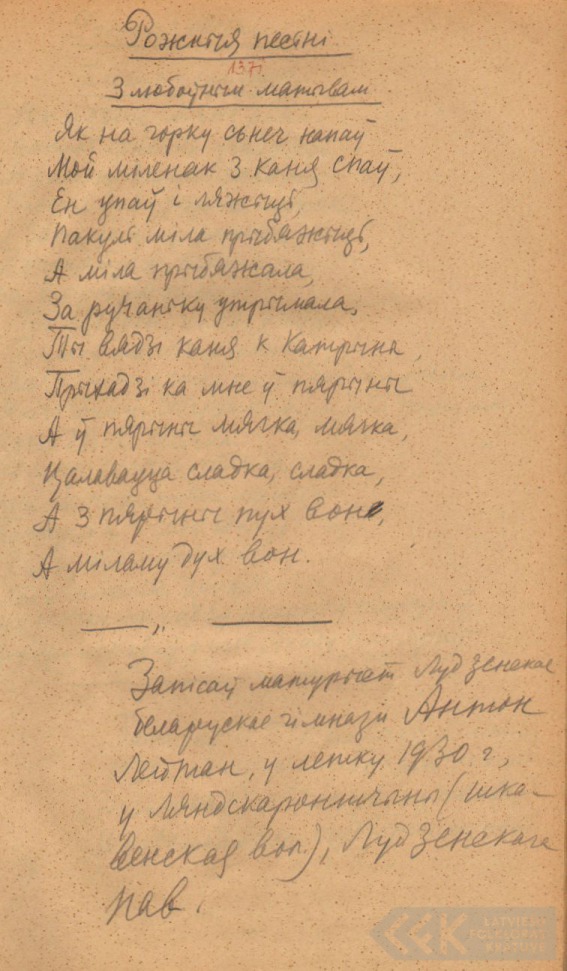 Рожныя песні
1371
З любоўным матывам
Як на горку сьнег напаў
Мой міленак з каня спаў,
Ен упаў і ляжыць,
Пакуль міла прыбяжыць,
А міла прыбяжала,
За ручаньку утрымала,
Ты вядзі каня к Катрына,
Прыхадзі ка мне ў пярыны
А ў пярыны мягка, мягка,
Цалавацца сладка, сладка,
А з пярыны пух вон,
А міламу дух вон.
Запісаў матурыст Лудзенскае
беларускае гімназіі Антон
Лейтан, у летку 1930 г.,
у Ляндскароншчыны (шка-
венская вол.), Лудзенскага
пав.
LATVIEŠU
FOLKLORAS
KRĀTUVE